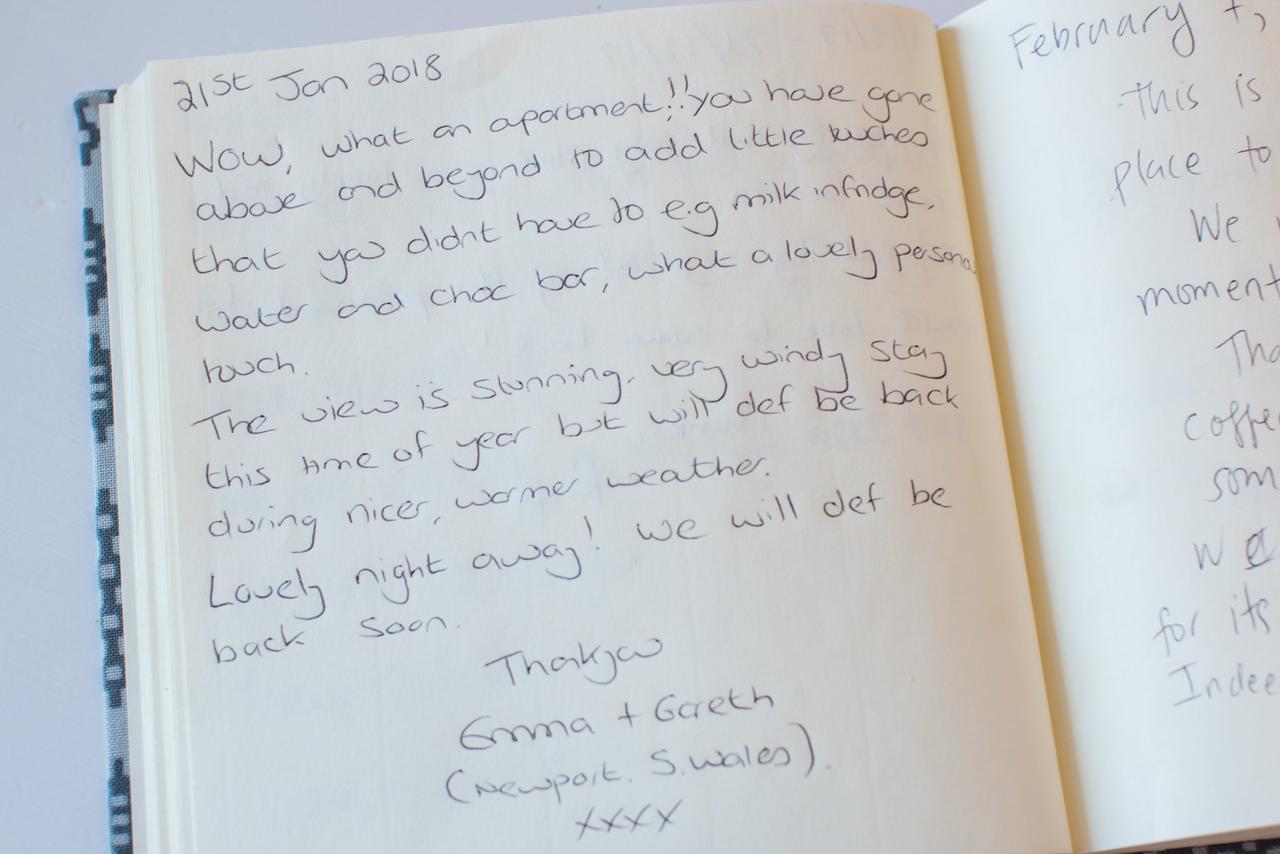 21st Jan 2018
Wow, what an apartment!! you have gone
above and beyond to add little touches
that you didnt have to e.g milk in fridge,
water and choc bar, what a lovely personal
touch.
The view is stunning, very windy stay
this time of year but will def be back
during nicer, warmer weather.
Lovely night away! we will def be
back soon.
Thankyou
Emma + Gareth
(Newport. S. Wales).
xxxx
February
This is
place to
We
moment
coffee
som
We
for its
Indee